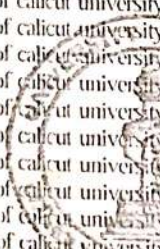 of calicut university
of calicut university
of calicut university
of calicut university
of calicut university
of calicut university
of calicut university
of calicut university
of calicut university
of calicut university
of calicut university